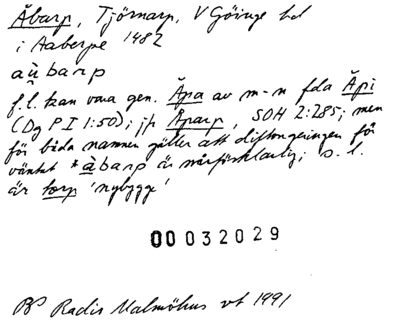 Åbarp, Tjörnarp, V Göinge hd
i Aaberpe 1482
aùbarp
f.l. kan vara gen. Åpa av m-n fda Åpi
(Dg P I 1:50); jfr Åparp, SOH 2:285; men
för båda namnen gäller att diftongeringen för
väntat *àbarp är svårförklarlig; s.l.
är torp 'nybygge'
00032029
BP Radis Malmöhus vt 1991